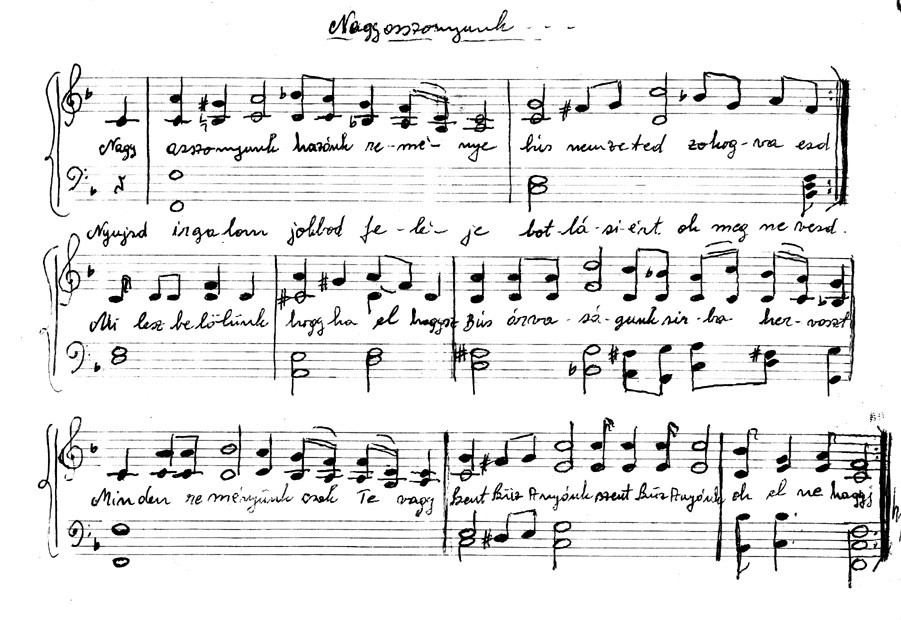 Nagyasszonyunk - - -
Nagy asszonyunk hazánk re-mé-nye bús nemzeted zokog-va esd
Nyujsd irgalom jobbod fe-lé-je bot-lá-si-ért oh meg ne vesd.
Mi lesz belőlünk hogy ha el hagysz Bús árva-sá-gunk sir-ba her-vaszt
Minden reményünk csak Te vagy Szent Szűz Anyánk szent Szűz Anyánk oh el ne hagyj